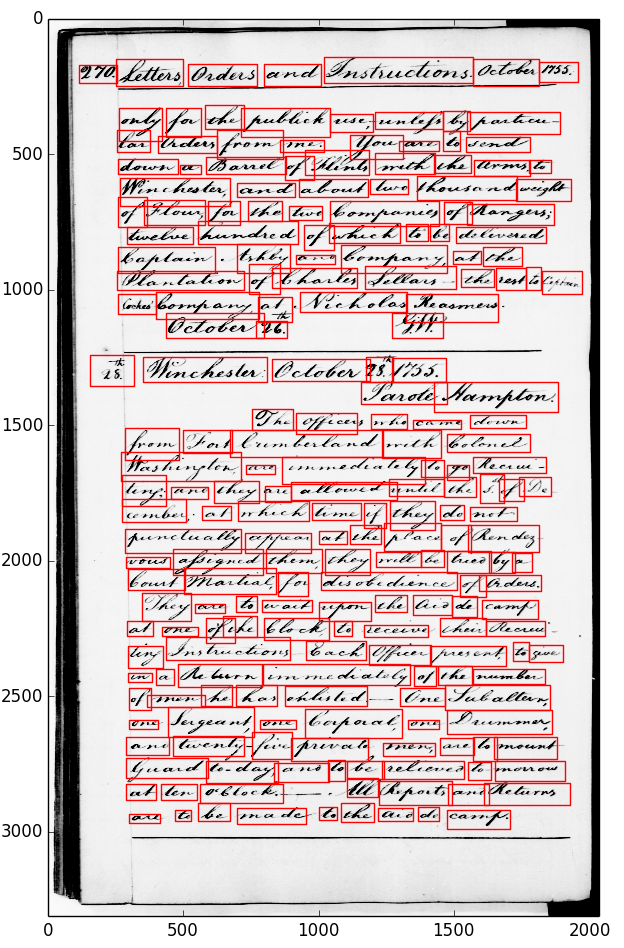 270. Letters, Orders and Instructions. October 1755.
only for the publick use, unless by particu-
lar Orders from me. You are to send
down a Barrel of Flints with the Arms, to
Winchester, and about two thousand weight
of Flour, for the two Companies of Rangers;
twelve hundred of which to be delivered
Captain Ashby and Company, at the
Plantation of Charles Sellars - the rest to Captain
Cockes' Company at Nicholas Reasmers.
October 26.th G.W.
28.th Winchester: October 28.th 1755.
Parole Hampton.
The officers who came down
from Fort Cumberland with Colonel
Washington, are immediately to go Recrui-
ting; and they are allowed until the 1.st of De-
cember, at which time if they do not
punctually appear at the place of Rendez-
vous assigned them, they will be tried by a
Court Martial, for disobedience of Orders.
They are to wait upon the Aid de camp
at one of the Clock, to receive their Recrui-
ting Instructions - Each Officer present, to give
in a Return immediately of the number
of men he has enlisted - One Subaltern,
one Sergeant, one Corporal, one Drummer,
and twenty-five private men, are to mount
Guard to-day, and to be relieved to-morrow
at ten o'Clock. - All Reports and Returns
are to be made to the Aid de camp.
0
500
1000
1500
2000
2500
3000
0 500 1000 1500 2000